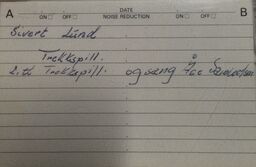 A DATE B
ON □ OFF □ NOISE REDUCTION ON □ OFF □
Sivert Lund
Trekkspill.
2. stk Trekkspill. og sang